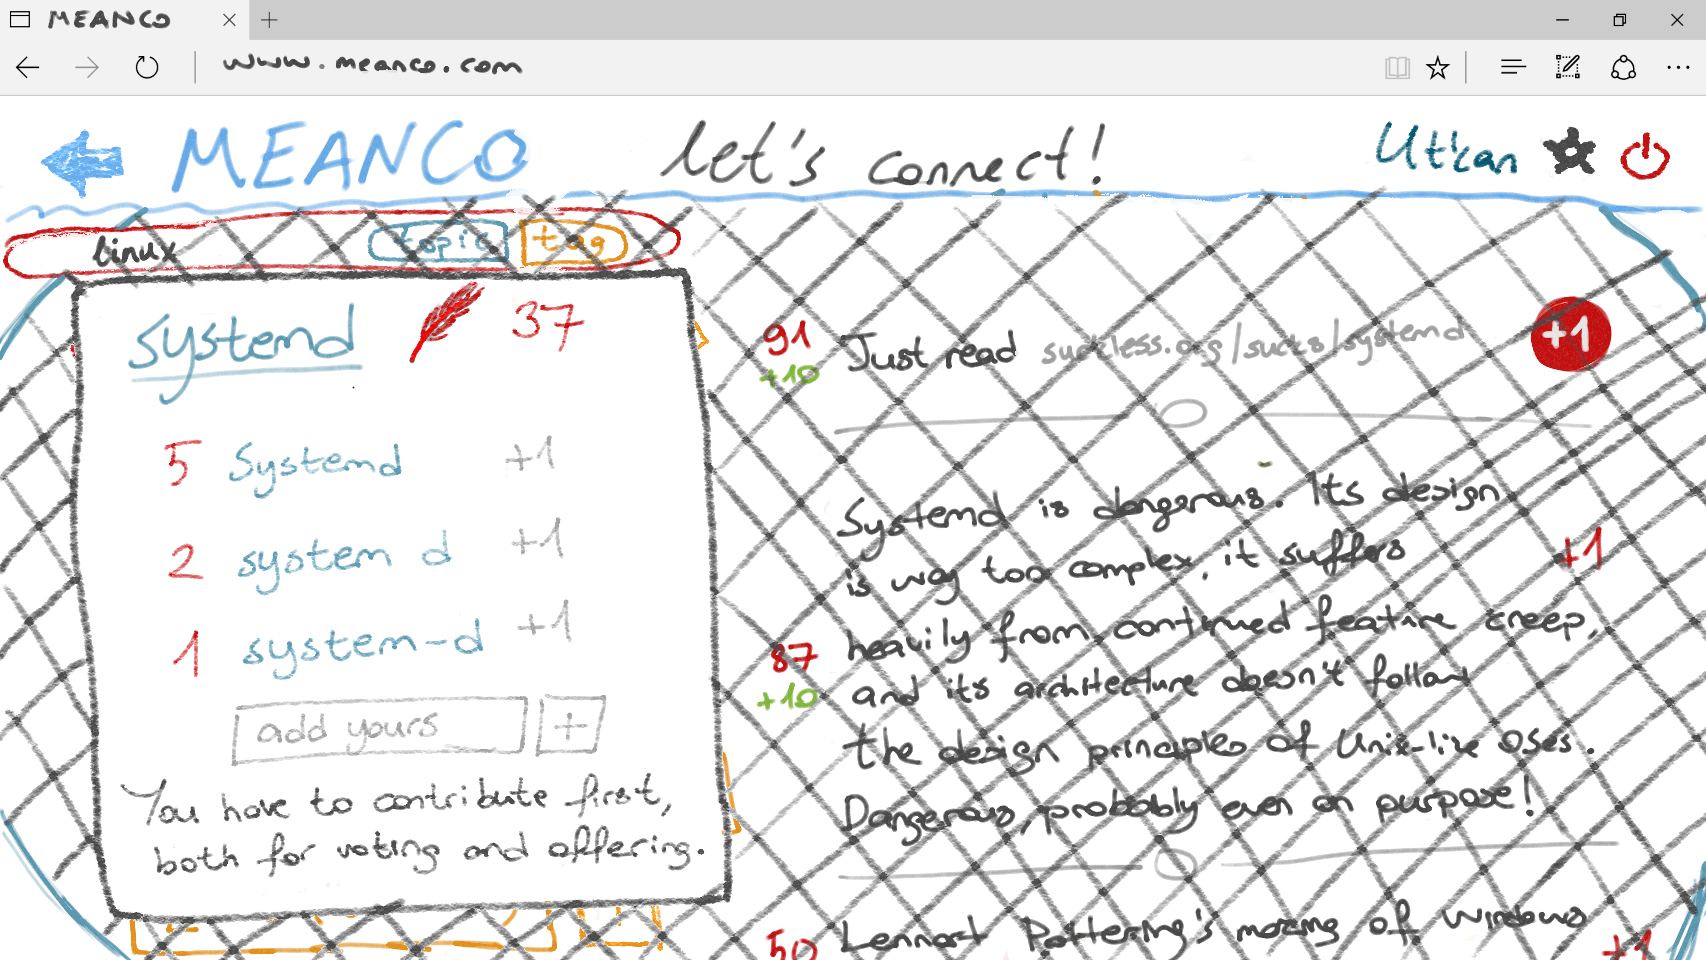 MEANCO
www.meanco.com
MEANCO let's connect! Utkan
linux topic tag
systemd 37
5 Systemd +1
2 system d +1
1 system-d +1
add yours +
You have to contribute first,
both for voting and offering.
91 Just read suckless.org/sucks/systemd +1
+10
Systemd is dangerous. Its design
is way too complex, it suffers +1
heavily from continued feature creep,
87 and its architecture doesn't follow
+10
the design principles of Unix-like OSes.
Dangerous, probably even on purpose!
50 Lennart Pottering's making of windows +1